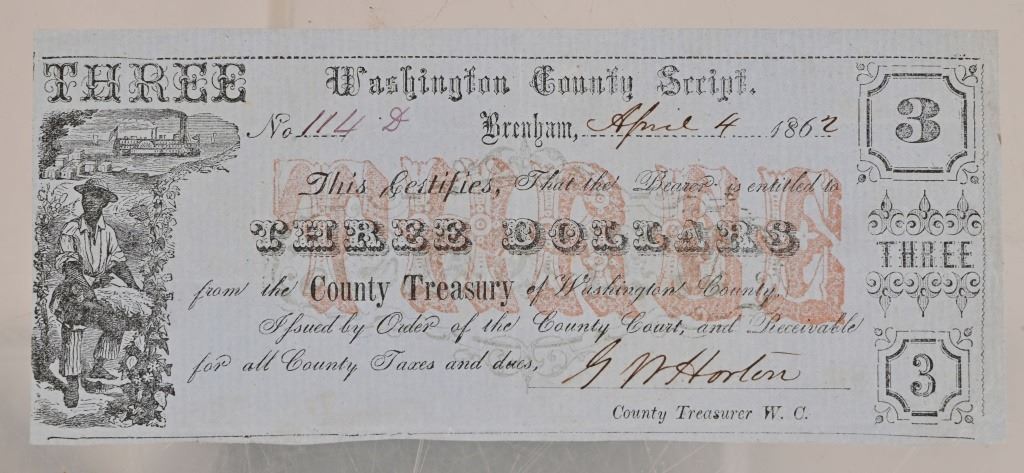 THREE
Washington County Script.
No. 114 D
Brenham, April 4 1862
3
THREE
This Certifies, That the Bearer is entitled to
THREE DOLLARS
THREE
from the County Treasury of Washington County.
Issued by Order of the County Court, and Receivable
for all County Taxes and dues,
G W Horton
3
County Treasurer W. C.